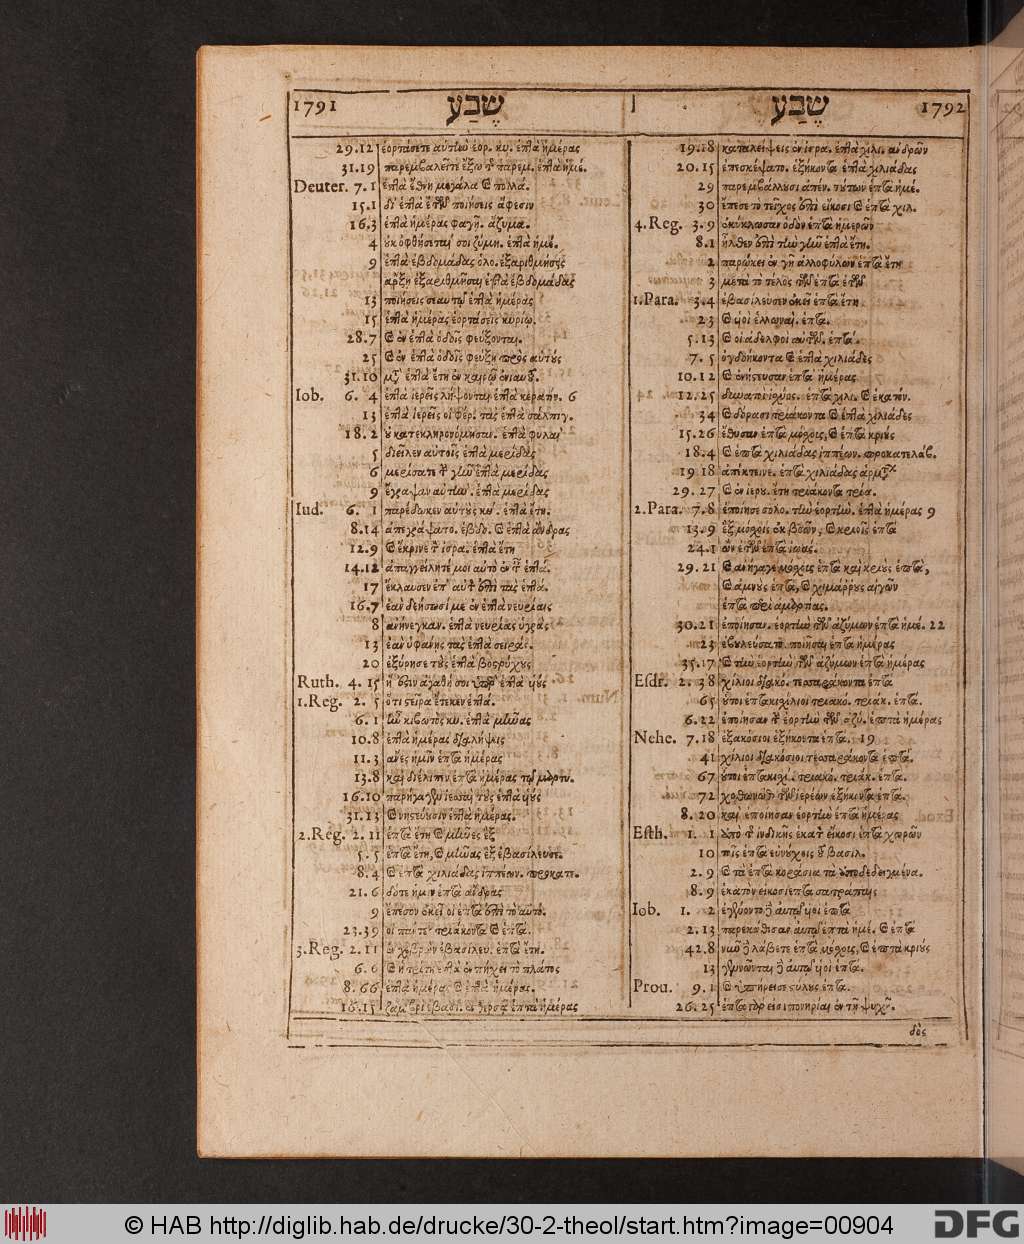 1791 שֶׁבַע
29.12 ἑορτάσετε αὐτὴν ἑορ. κυ. ἑπτὰ ἡμέρας
31.19 παρεμβαλεῖτε ἔξω τ παρεμ. ἑπτὰ ἡμέ.
Deuter. 7.1 ἑπτὰ ἔθνη μεγάλα καὶ πολλά.
15.1 δι' ἑπτὰ ἐτῶν ποιήσεις ἄφεσιν
16.3 ἑπτὰ ἡμέρας φαγῇ. ἄζυμα.
4 οὐκ ὀφθήσεταί σοι ζύμη. ἑπτὰ ἡμέ.
9 ἑπτὰ ἑβδομάδας ὁλο. ἐξαριθμήσῃς
ἄρξῃ ἐξαριθμῆσαι ἑπτὰ ἑβδομάδας
13 ποιήσεις σεαυτῷ ἑπτὰ ἡμέρας
15 ἑπτὰ ἡμέρας ἑορτάσεις κυρίῳ.
28.7 καὶ ἐν ἑπτὰ ὁδοῖς φεύξονται.
25 καὶ ἐν ἑπτὰ ὁδοῖς φεύξῃ πρὸς αὐτούς
31.10 μετ ἑπτὰ ἔτη ἐν καιρῷ ἐνιαυτ.
Iob. 6. 4 ἑπτὰ ἱερεῖς λήψονται ἑπτὰ κερατίν. 6
13 ἑπτὰ ἱερεῖς οἱ φέρ. τὰς ἑπτὰ σάλπιγ.
18.2 οὐ κατεκληρονόμησαν. ἑπτὰ φυλαί
5 διεῖλεν αὐτοῖς ἑπτὰ μερίδας
6 μερίσατε τ γῆν ἑπτὰ μερίδας
9 ἔγραψαν αὐτήν. ἑπτὰ μερίδας
Iud. 6. 1 παρέδωκεν αὐτοὺς κύ. ἑπτὰ ἔτη.
8.14 ἀπεγράψατο. ἑβδο. καὶ ἑπτὰ ἄνδρας
12.9 καὶ ἔκρινε τ ἰσρα. ἑπτὰ ἔτη
14.12 ἀπαγγείλητέ μοι αὐτὸ ἐν τ ἑπτά.
17 ἔκλαυσεν ἐπ' αὐτ ἐπὶ τὰς ἑπτά.
16.7 ἐὰν δεήσωσί με ἐν ἑπτὰ νευρίαις
8 ἀνήνεγκαν. ἑπτὰ νευρίας ὑγράς
13 ἐὰν ὑφάνῃς τὰς ἑπτὰ σειράς.
20 ἐξύρησε τοὺς ἑπτὰ βοστρύχους
Ruth. 4. 15 ἥ ἐστιν ἀγαθή σοι ὑπὲρ ἑπτὰ υἱούς
1.Reg. 2. 5 ὅτι στεῖρα ἔτεκεν ἑπτά.
6. 1 ἦν κιβωτὸς κυ. ἑπτὰ μῆνας
10.8 ἑπτὰ ἡμέρας διαλήψεις
11.3 ἄνες ἡμῖν ἑπτὰ ἡμέρας
13.8 καὶ διέλιπεν ἑπτὰ ἡμέρας τῷ μαρτυ.
16.10 παρήγαγεν ἰεσσαὶ τοὺς ἑπτὰ υἱούς
31.13 καὶ νηστεύουσιν ἑπτὰ ἡμέρας.
2.Reg. 2.11 ἑπτὰ ἔτη καὶ μῆνες ἕξ
5. 5 ἑπτὰ ἔτη, καὶ μῆνας ἕξ ἐβασίλευσε.
8.4 καὶ ἑπτὰ χιλιάδας ἱππέων. προκατε.
21.6 δότε ἡμῖν ἑπτὰ ἄνδρας
9 ἔπεσον ἐκεῖ οἱ ἑπτὰ ἐπὶ τὸ αὐτό.
23.39 οἱ πάντες τριάκοντα καὶ ἑπτά.
3.Reg. 2.11 ἐν χεβρὼν ἐβασίλευ. ἑπτὰ ἔτη.
6. 6 καὶ ἡ τρίτη ἑπτὰ ἐν πήχει τὸ πλάτος
8. 66 ἑπτὰ ἡμέρας καὶ ἑπτὰ ἡμέρας.
16.15 ζαμβρὶ ἐβασί. ἐν θερσὰ ἑπτὰ ἡμέρας
שֶׁבַע 1792
19.18 καταλείψεις ἐν ἰσρα. ἑπτὰ χιλι. ἀνδρῶν
20.15 ἐπεσκέψατο. ἑξήκοντα ἑπτὰ χιλιάδας
29 παρεμβάλλουσι ἀπέν. τούτων ἑπτὰ ἡμέ.
30 ἔπεσε τὸ τεῖχος ἐπὶ εἴκοσι καὶ ἑπτὰ χιλ.
4.Reg. 3. 9 ἐκύκλωσαν ὁδὸν ἑπτὰ ἡμερῶν
8.1 ἦλθεν ἐπὶ τὴν γῆν ἑπτὰ ἔτη.
2 παρώκει ἐν γῇ ἀλλοφύλων ἑπτὰ ἔτη
3 μετὰ τὸ τέλος τῶν ἑπτὰ ἐτῶν
1.Para. 3.4 ἐβασίλευσεν ἐκεῖ ἑπτὰ ἔτη
23 καὶ υἱοὶ ἐλιωναΐ. ἑπτά.
5.13 καὶ οἱ ἀδελφοὶ αὐτῶν. ἑπτά.
7. 5 ὀγδοήκοντα καὶ ἑπτὰ χιλιάδες
10.12 καὶ ἐνήστευσαν ἑπτὰ ἡμέρας
12.25 δυνατοὶ ἰσχύος. ἑπτὰ χιλι. καὶ ἑκατόν.
34 καὶ δόρασι τριάκοντα καὶ ἑπτὰ χιλιάδες
15.26 ἔθυσαν ἑπτὰ μόσχους, καὶ ἑπτὰ κριούς
18.4 καὶ ἑπτὰ χιλιάδας ἱππέων. προκατελάβ.
19 18 ἀπέκτεινε. ἑπτὰ χιλιάδας ἁρμάτ
29. 27 καὶ ἐν ἱερου. ἔτη τριάκοντα τρία.
2.Para. 7.8 ἐποίησε σολο. τὴν ἑορτήν. ἑπτὰ ἡμέρας 9
13.9 ἐξ μόσχοις ἐκ βοῶν, καὶ κριοῖς ἑπτά
24.1 ὢν ἐτῶν ἑπτὰ ἰωάς.
29. 21 καὶ ἀνήγαγε μόσχους ἑπτὰ καὶ κριοὺς ἑπτά,
καὶ ἀμνοὺς ἑπτά, καὶ χιμάρρους αἰγῶν
ἑπτὰ περὶ ἁμαρτίας.
30.21 ἐποίησαν. ἑορτὴν τῶν ἀζύμων ἑπτὰ ἡμέ. 22
23 ἐβουλεύσατο. ποιῆσαι ἑπτὰ ἡμέρας
35.17 καὶ τὴν ἑορτὴν τῶν ἀζύμων ἑπτὰ ἡμέρας
Esdr. 2. 38 χίλιοι διακό. τεσσαράκοντα ἑπτά
65 οὗτοι ἑπτακισχίλιοι τριακό. τριάκ. ἑπτά.
6.22 ἐποίησαν τ ἑορτὴν τῶν ἀζύ. ἑπτὰ ἡμέρας
Nehe. 7.18 ἑξακόσιοι ἑξήκοντα ἑπτά. 19
41 χίλιοι διακόσιοι τεσσαράκοντα ἑπτά.
67 οὗτοι ἑπτακισχί. τριακό. τριάκ. ἑπτά.
72 χοθωνὼθ τῶν ἱερέων ἑξήκοντα ἑπτά.
8. 20 καὶ ἐποίησαν ἑορτὴν ἑπτὰ ἡμέρας
Esth. 1. 1 ἀπὸ τ ἰνδικῆς ἑκατ εἴκοσι ἑπτὰ χωρῶν
10 τοῖς ἑπτὰ εὐνούχοις τ βασιλ.
2. 9 καὶ τὰ ἑπτὰ κοράσια τὰ ἀποδεδειγμένα.
8. 9 ἑκατὸν εἰκοσιεπτὰ σατραπείαις
Iob. 1. 2 ἐγένοντο δὲ αὐτῷ υἱοὶ ἑπτά
2.13 παρεκάθισαν αὐτῷ ἑπτὰ ἡμέ. καὶ ἑπτά
42.8 νῦν δὲ λάβετε ἑπτὰ μόσχους, καὶ ἑπτὰ κριούς
13 γεννῶνται δὲ αὐτῷ υἱοὶ ἑπτά.
Prou. 9. 1 καὶ ὑπήρεισε στύλους ἑπτά.
26. 25 ἑπτὰ γάρ εἰσι πονηρίαι ἐν τῇ ψυχῇ.
δὸς
© HAB http://diglib.hab.de/drucke/30-2-theol/start.htm?image=00904
DFG